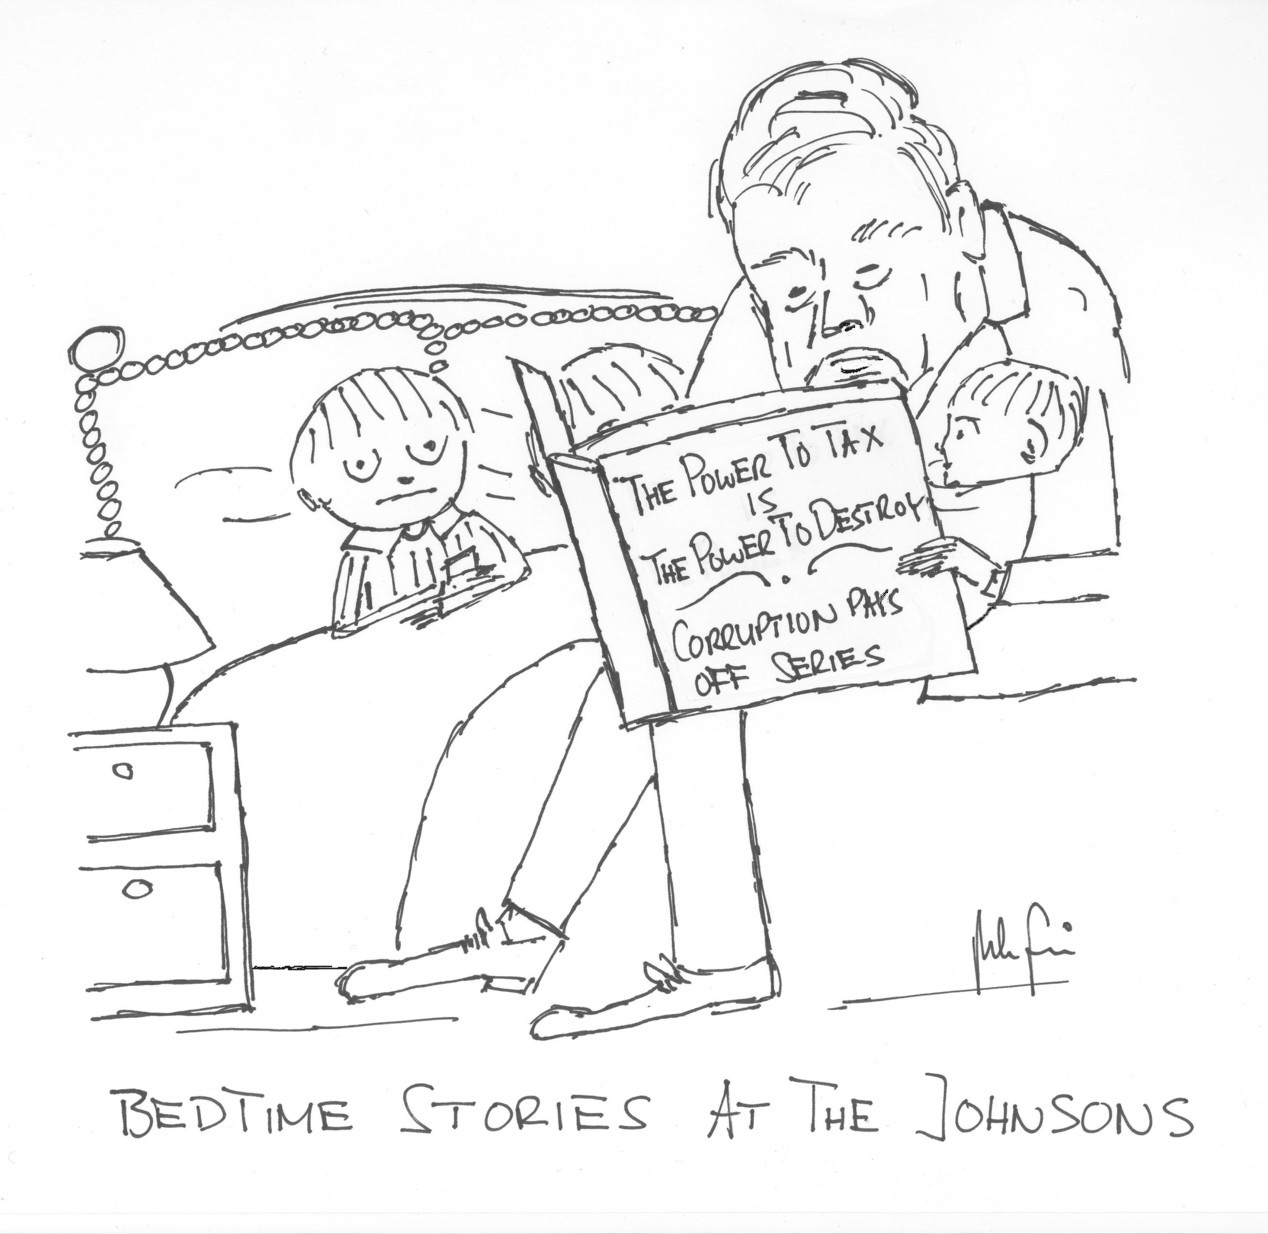 THE POWER TO TAX
IS
THE POWER TO DESTROY
CORRUPTION PAYS
OFF SERIES
BEDTIME STORIES AT THE JOHNSONS